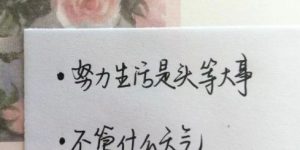 ·努力生活是头等大事
·不管什么天气